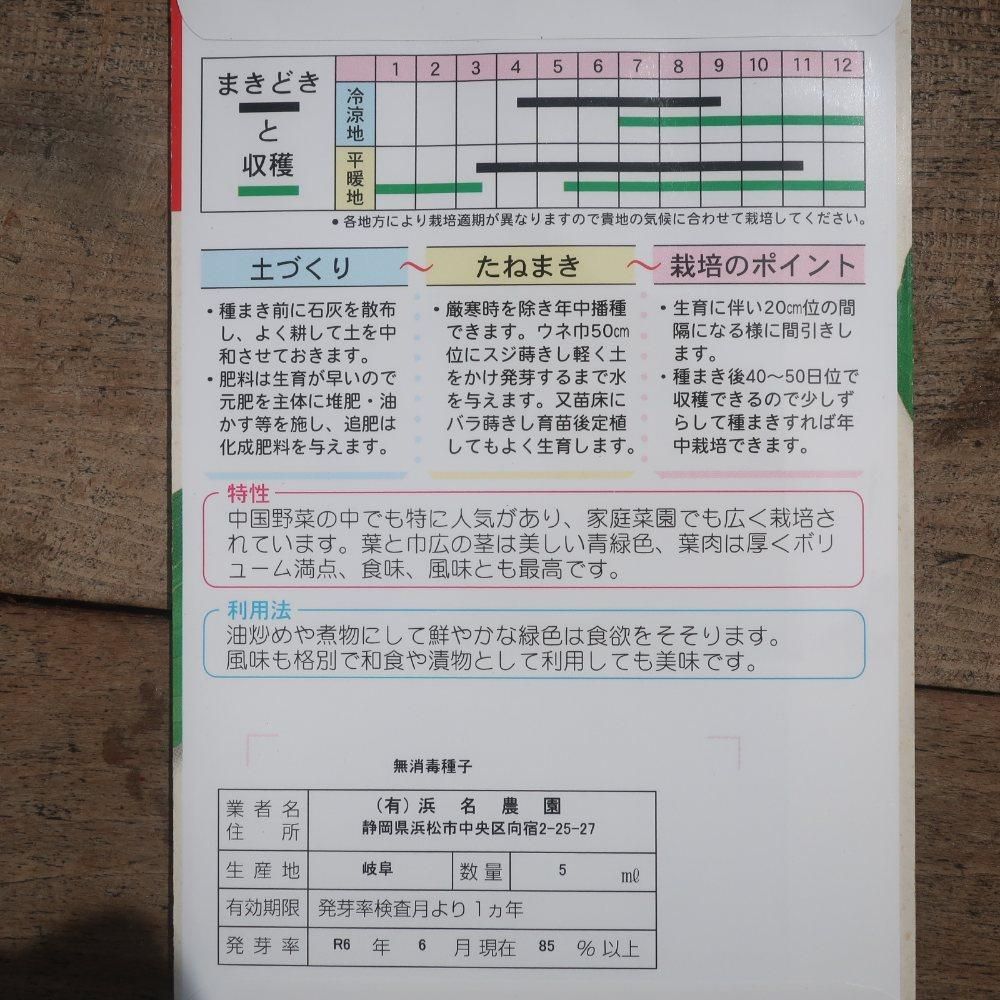 まきどき
と
収穫
1 2 3 4 5 6 7 8 9 10 11 12
冷涼地
平暖地
●各地方により栽培適期が異なりますので貴地の気候に合わせて栽培してください。
土づくり 〜 たねまき 〜 栽培のポイント
・種まき前に石灰を散布
し、よく耕して土を中
和させておきます。
・肥料は生育が早いので
元肥を主体に堆肥・油
かす等を施し、追肥は
化成肥料を与えます。
・厳寒時を除き年中播種
できます。ウネ巾50㎝
位にスジ蒔きし軽く土
をかけ発芽するまで水
を与えます。又苗床に
バラ蒔きし育苗後定植
してもよく生育します。
・生育に伴い20㎝位の間
隔になる様に間引きし
ます。
・種まき後40〜50日位で
収穫できるので少しず
らして種まきすれば年
中栽培できます。
特性
中国野菜の中でも特に人気があり、家庭菜園でも広く栽培さ
れています。葉と巾広の茎は美しい青緑色、葉肉は厚くボリ
ューム満点、食味、風味とも最高です。
利用法
油炒めや煮物にして鮮やかな緑色は食欲をそそります。
風味も格別で和食や漬物として利用しても美味です。
無消毒種子
業者名 (有)浜名農園
住所 静岡県浜松市中央区向宿2-25-27
生産地 岐阜 数量 5 mℓ
有効期限 発芽率検査月より1ヵ年
発芽率 R6 年 6 月現在 85 %以上